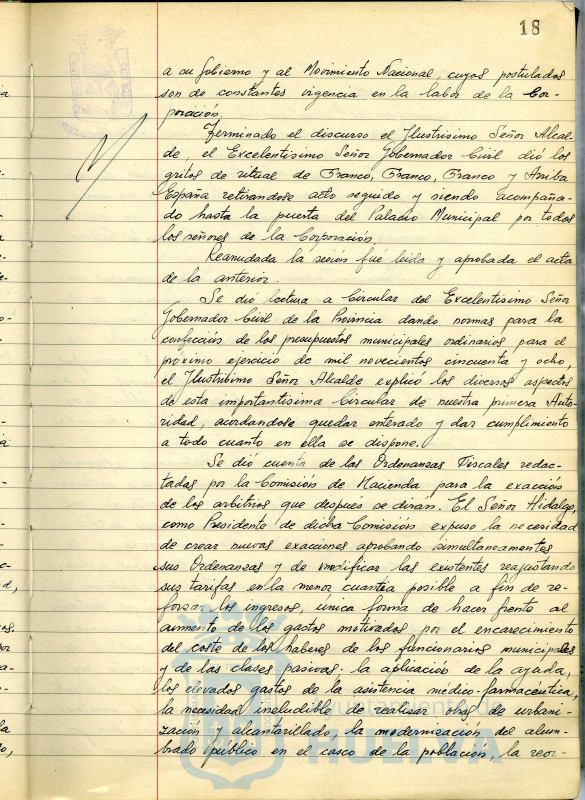 18
a su Gobierno y al Movimiento Nacional, cuyos postulados
son de constantes vigencia en la labor de la Cor-
poración.
Terminado el discurso el Ilustrisimo Señor Alcal-
de, el Excelentisimo Señor Gobernador Civil dió los
gritos de ritual de Franco, Franco, Franco y Arriba
España retirandose acto seguido y siendo acompaña-
do hasta la puerta del Palacio Municipal por todos
los señores de la Corporación.
Reanudada la seción fué leida y aprobada el acta
de la anterior.
Se dió lectura a Circular del Excelentisimo Señor
Gobernador Civil de la Provincia dando normas para la
confección de los presupuestos municipales ordinarios para el
próximo ejercicio de mil novecientos cincuenta y ocho,
el Ilustrisimo Señor Alcalde explicó los diversos aspectos
de esta importantisima Circular de nuestra primera Auto-
ridad, acordandose quedar enterado y dar cumplimiento
a todo cuanto en ella se dispone.
Se dió cuenta de las Ordenanzas Fiscales redac-
tadas por la Comisión de Hacienda para la exacción
de los arbitrios que después se diran. El Señor Hidalgo,
como Presidente de dicha Comisión expuso la necesidad
de crear nuevas exacciones aprobando simultaneamentes
sus Ordenanzas y de modificar las existentes reajustando
sus tarifas en la menor cuantia posible a fin de re-
forzar los ingresos, unica forma de hacer frente al
aumento de los gastos motivados por el encarecimiento
del coste de los haberes de los funcionarios municipales
y de las clases pasivas, la aplicación de la ayuda,
los elevados gastos de la asistencia médico-farmaceutica,
la necesidad ineludible de realizar obras de urbani-
zación y alcantarillado, la modernización del alum-
brado público en el casco de la población, la reor-
Ayuntamiento de
HUELVA